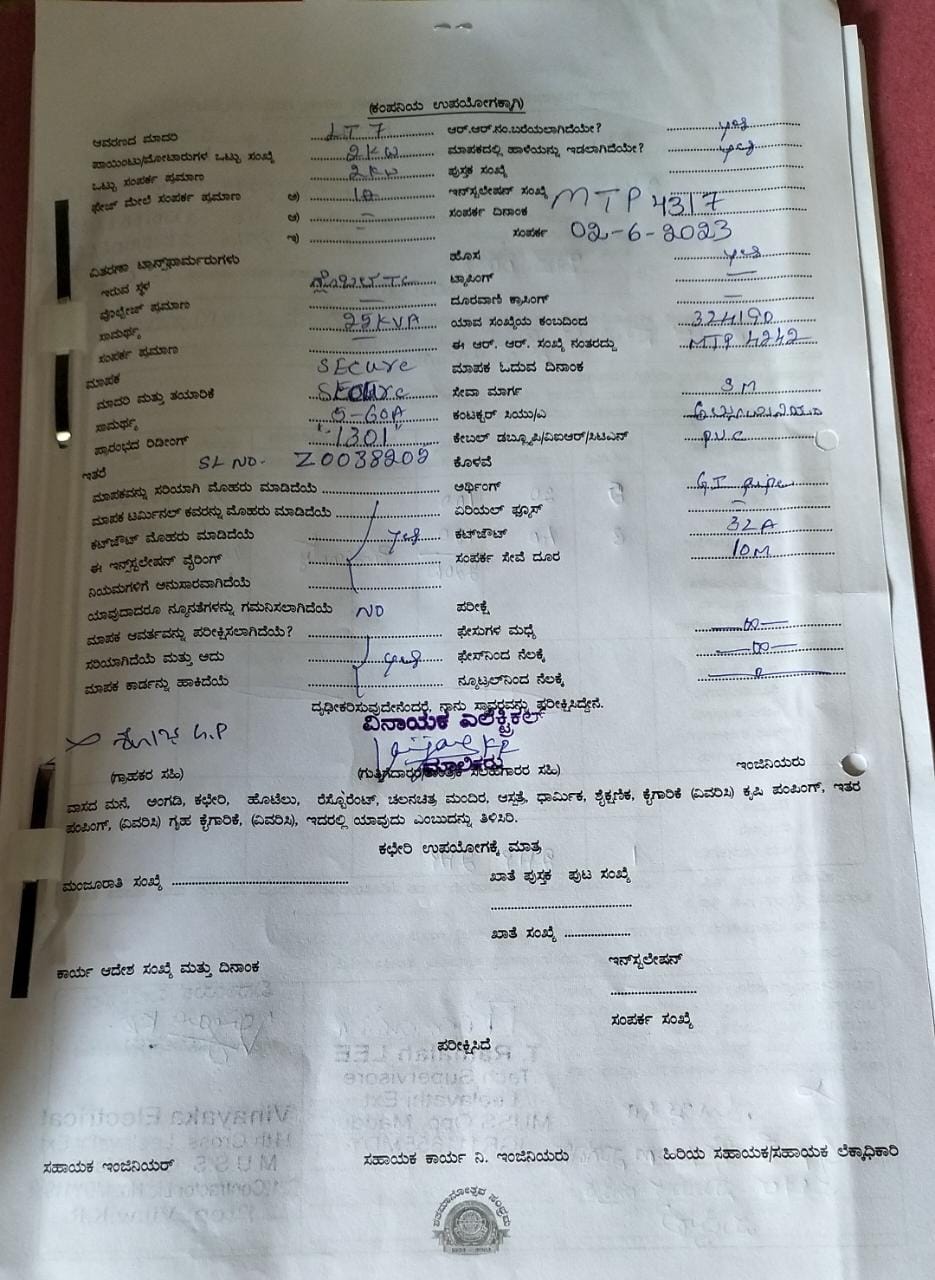 (ಕಂಪನಿಯ ಉಪಯೋಗಕ್ಕಾಗಿ)
ಆವರಣದ ಮಾದರಿ LT 7 ಆರ್.ಆರ್.ನಂ.ಬರೆಯಲಾಗಿದೆಯೇ? yes
ಪಾಯಿಂಟು/ಮೋಟಾರುಗಳ ಒಟ್ಟು ಸಂಖ್ಯೆ 2KW ಮಾಪಕದಲ್ಲಿ ಹಾಳೆಯನ್ನು ಇಡಲಾಗಿದೆಯೇ? yes
ಒಟ್ಟು ಸಂಪರ್ಕ ಪ್ರಮಾಣ 2KW ಪುಸ್ತಕ ಸಂಖ್ಯೆ
ಫೇಜ್ ಮೇಲೆ ಸಂಪರ್ಕ ಪ್ರಮಾಣ ಅ) ಇನ್‌ಸ್ಟಲೇಷನ್ ಸಂಖ್ಯೆ MTP 4317
ಆ) – ಸಂಪರ್ಕ ದಿನಾಂಕ
ಇ) ಸಂಪರ್ಕ 02-6-2023
ವಿತರಣಾ ಟ್ರಾನ್ಸ್‌ಫಾರ್ಮರುಗಳು ಹೊಸ yes
ಇರುವ ಸ್ಥಳ ಟ್ಯಾಪಿಂಗ್ –
ವೊಲ್ಟೇಜ್ ಪ್ರಮಾಣ – ದೂರವಾಣಿ ಕ್ರಾಸಿಂಗ್ –
ಸಾಮರ್ಥ್ಯ 25KVA ಯಾವ ಸಂಖ್ಯೆಯ ಕಂಬದಿಂದ 324190
ಸಂಪರ್ಕ ಪ್ರಮಾಣ – ಈ ಆರ್. ಆರ್. ಸಂಖ್ಯೆ ನಂತರದ್ದು MTP 4242
ಮಾಪಕ SECure ಮಾಪಕ ಓದುವ ದಿನಾಂಕ
ಮಾದರಿ ಮತ್ತು ತಯಾರಿಕೆ SECure ಸೇವಾ ಮಾರ್ಗ 3M
ಸಾಮರ್ಥ್ಯ 5-60A ಕಂಟಕ್ಟರ್ ಸಿಯು/ಎ
ಪ್ರಾರಂಭದ ರಿಡೀಂಗ್ "1301" ಕೇಬಲ್ ಡಬ್ಲ್ಯೂಪಿ/ವಿಐಆರ್/ಸಿಟಿಎಸ್ P.V.C
ಇತರೆ SL NO. Z0038202 ಕೊಳವೆ
ಮಾಪಕವನ್ನು ಸರಿಯಾಗಿ ಮೊಹರು ಮಾಡಿದೆಯೆ ಅರ್ಥಿಂಗ್ G.I pipe
ಮಾಪಕ ಟರ್ಮಿನಲ್ ಕವರನ್ನು ಮೊಹರು ಮಾಡಿದೆಯೆ ಏರಿಯಲ್ ಫ್ಯೂಸ್ –
ಕಟ್‌ಔಟ್ ಮೊಹರು ಮಾಡಿದೆಯೆ yes ಕಟ್‌ಔಟ್ 32A
ಈ ಇನ್‌ಸ್ಟಲೇಷನ್ ವೈರಿಂಗ್ ಸಂಪರ್ಕ ಸೇವೆ ದೂರ 10M
ನಿಯಮಗಳಿಗೆ ಅನುಸಾರವಾಗಿದೆಯೆ
ಯಾವುದಾದರೂ ನ್ಯೂನತೆಗಳನ್ನು ಗಮನಿಸಲಾಗಿದೆಯೆ NO ಪರೀಕ್ಷೆ
ಮಾಪಕ ಆವರ್ತವನ್ನು ಪರೀಕ್ಷಿಸಲಾಗಿದೆಯೆ? ಫೇಸುಗಳ ಮಧ್ಯೆ ∞
ಸರಿಯಾಗಿದೆಯೆ ಮತ್ತು ಅದು yes ಫೇಸ್‌ನಿಂದ ನೆಲಕ್ಕೆ ∞
ಮಾಪಕ ಕಾರ್ಡನ್ನು ಹಾಕಿದೆಯೆ ನ್ಯೂಟ್ರಲ್‌ನಿಂದ ನೆಲಕ್ಕೆ 0
ದೃಢೀಕರಿಸುವುದೇನೆಂದರೆ, ನಾನು ಸ್ಥಾವರವನ್ನು ಪರೀಕ್ಷಿಸಿದ್ದೇನೆ.
ವಿನಾಯಕ ಎಲೆಕ್ಟ್ರಿಕಲ್
ಮಾಲಿಕರು
(ಗ್ರಾಹಕರ ಸಹಿ) (ಗುತ್ತಿಗೆದಾರರ/ತಾಂತ್ರಿಕ ಸಲಹೆಗಾರರ ಸಹಿ) ಇಂಜಿನಿಯರು
ವಾಸದ ಮನೆ, ಅಂಗಡಿ, ಕಛೇರಿ, ಹೊಟೆಲು, ರೆಸ್ಟೊರೆಂಟ್, ಚಲನಚಿತ್ರ ಮಂದಿರ, ಆಸ್ಪತ್ರೆ, ಧಾರ್ಮಿಕ, ಶೈಕ್ಷಣಿಕ, ಕೈಗಾರಿಕೆ (ವಿವರಿಸಿ) ಕೃಷಿ ಪಂಪಿಂಗ್, ಇತರ
ಪಂಪಿಂಗ್, (ವಿವರಿಸಿ) ಗೃಹ ಕೈಗಾರಿಕೆ, (ವಿವರಿಸಿ), ಇದರಲ್ಲಿ ಯಾವುದು ಎಂಬುದನ್ನು ತಿಳಿಸಿರಿ.
ಕಛೇರಿ ಉಪಯೋಗಕ್ಕೆ ಮಾತ್ರ
ಮಂಜೂರಾತಿ ಸಂಖ್ಯೆ ಖಾತೆ ಪುಸ್ತಕ ಪುಟ ಸಂಖ್ಯೆ
ಖಾತೆ ಸಂಖ್ಯೆ
ಕಾರ್ಯ ಆದೇಶ ಸಂಖ್ಯೆ ಮತ್ತು ದಿನಾಂಕ ಇನ್‌ಸ್ಟಲೇಷನ್
ಸಂಪರ್ಕ ಸಂಖ್ಯೆ
ಪರೀಕ್ಷಿಸಿದೆ
ಸಹಾಯಕ ಇಂಜಿನಿಯರ್ ಸಹಾಯಕ ಕಾರ್ಯ ನಿ. ಇಂಜಿನಿಯರು ಹಿರಿಯ ಸಹಾಯಕ/ಸಹಾಯಕ ಲೆಕ್ಕಾಧಿಕಾರಿ